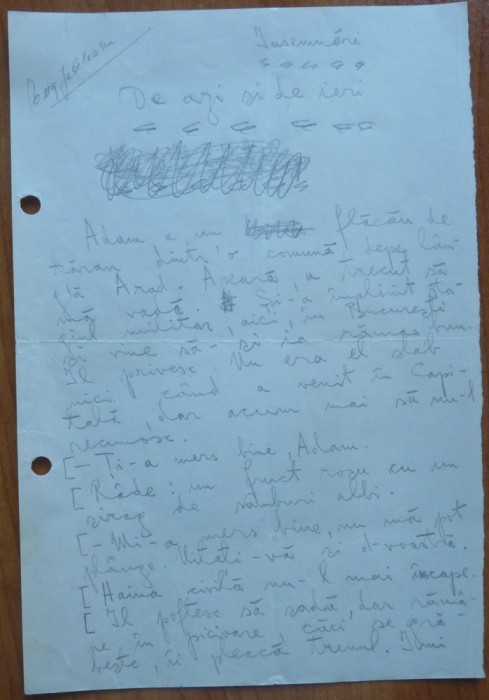 Însemnări
De azi și de ieri
Adam e un flăcău de
țăran dintr'o comună depe lân-
gă Arad. Aseară, a trecut să
mă vadă. Și-a împlinit sta-
giul militar, aici, în București
și vine să-și ia rămas bun.
Îl privesc. Nu era el slab
nici când a venit în Capi-
tală, dar acum mai să nu-l
recunosc.
[- Ți-a mers bine, Adam.
[ Râde: un fruct roșu cu un
șirag de sâmburi albi.
[- Mi-a mers bine, nu mă pot
plânge. Uitați-vă și d-voastră.
[ Haina civilă nu-l mai încape.
[ Îl poftesc să șadă, dar rămâ-
ne în picioare, căci se gră-
bește, îi pleacă trenul. Îmi